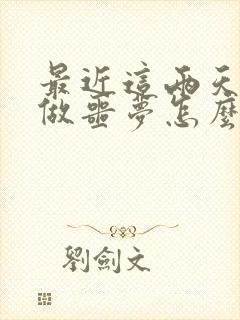 最近這兩天
做噩夢怎麼
劉劍文